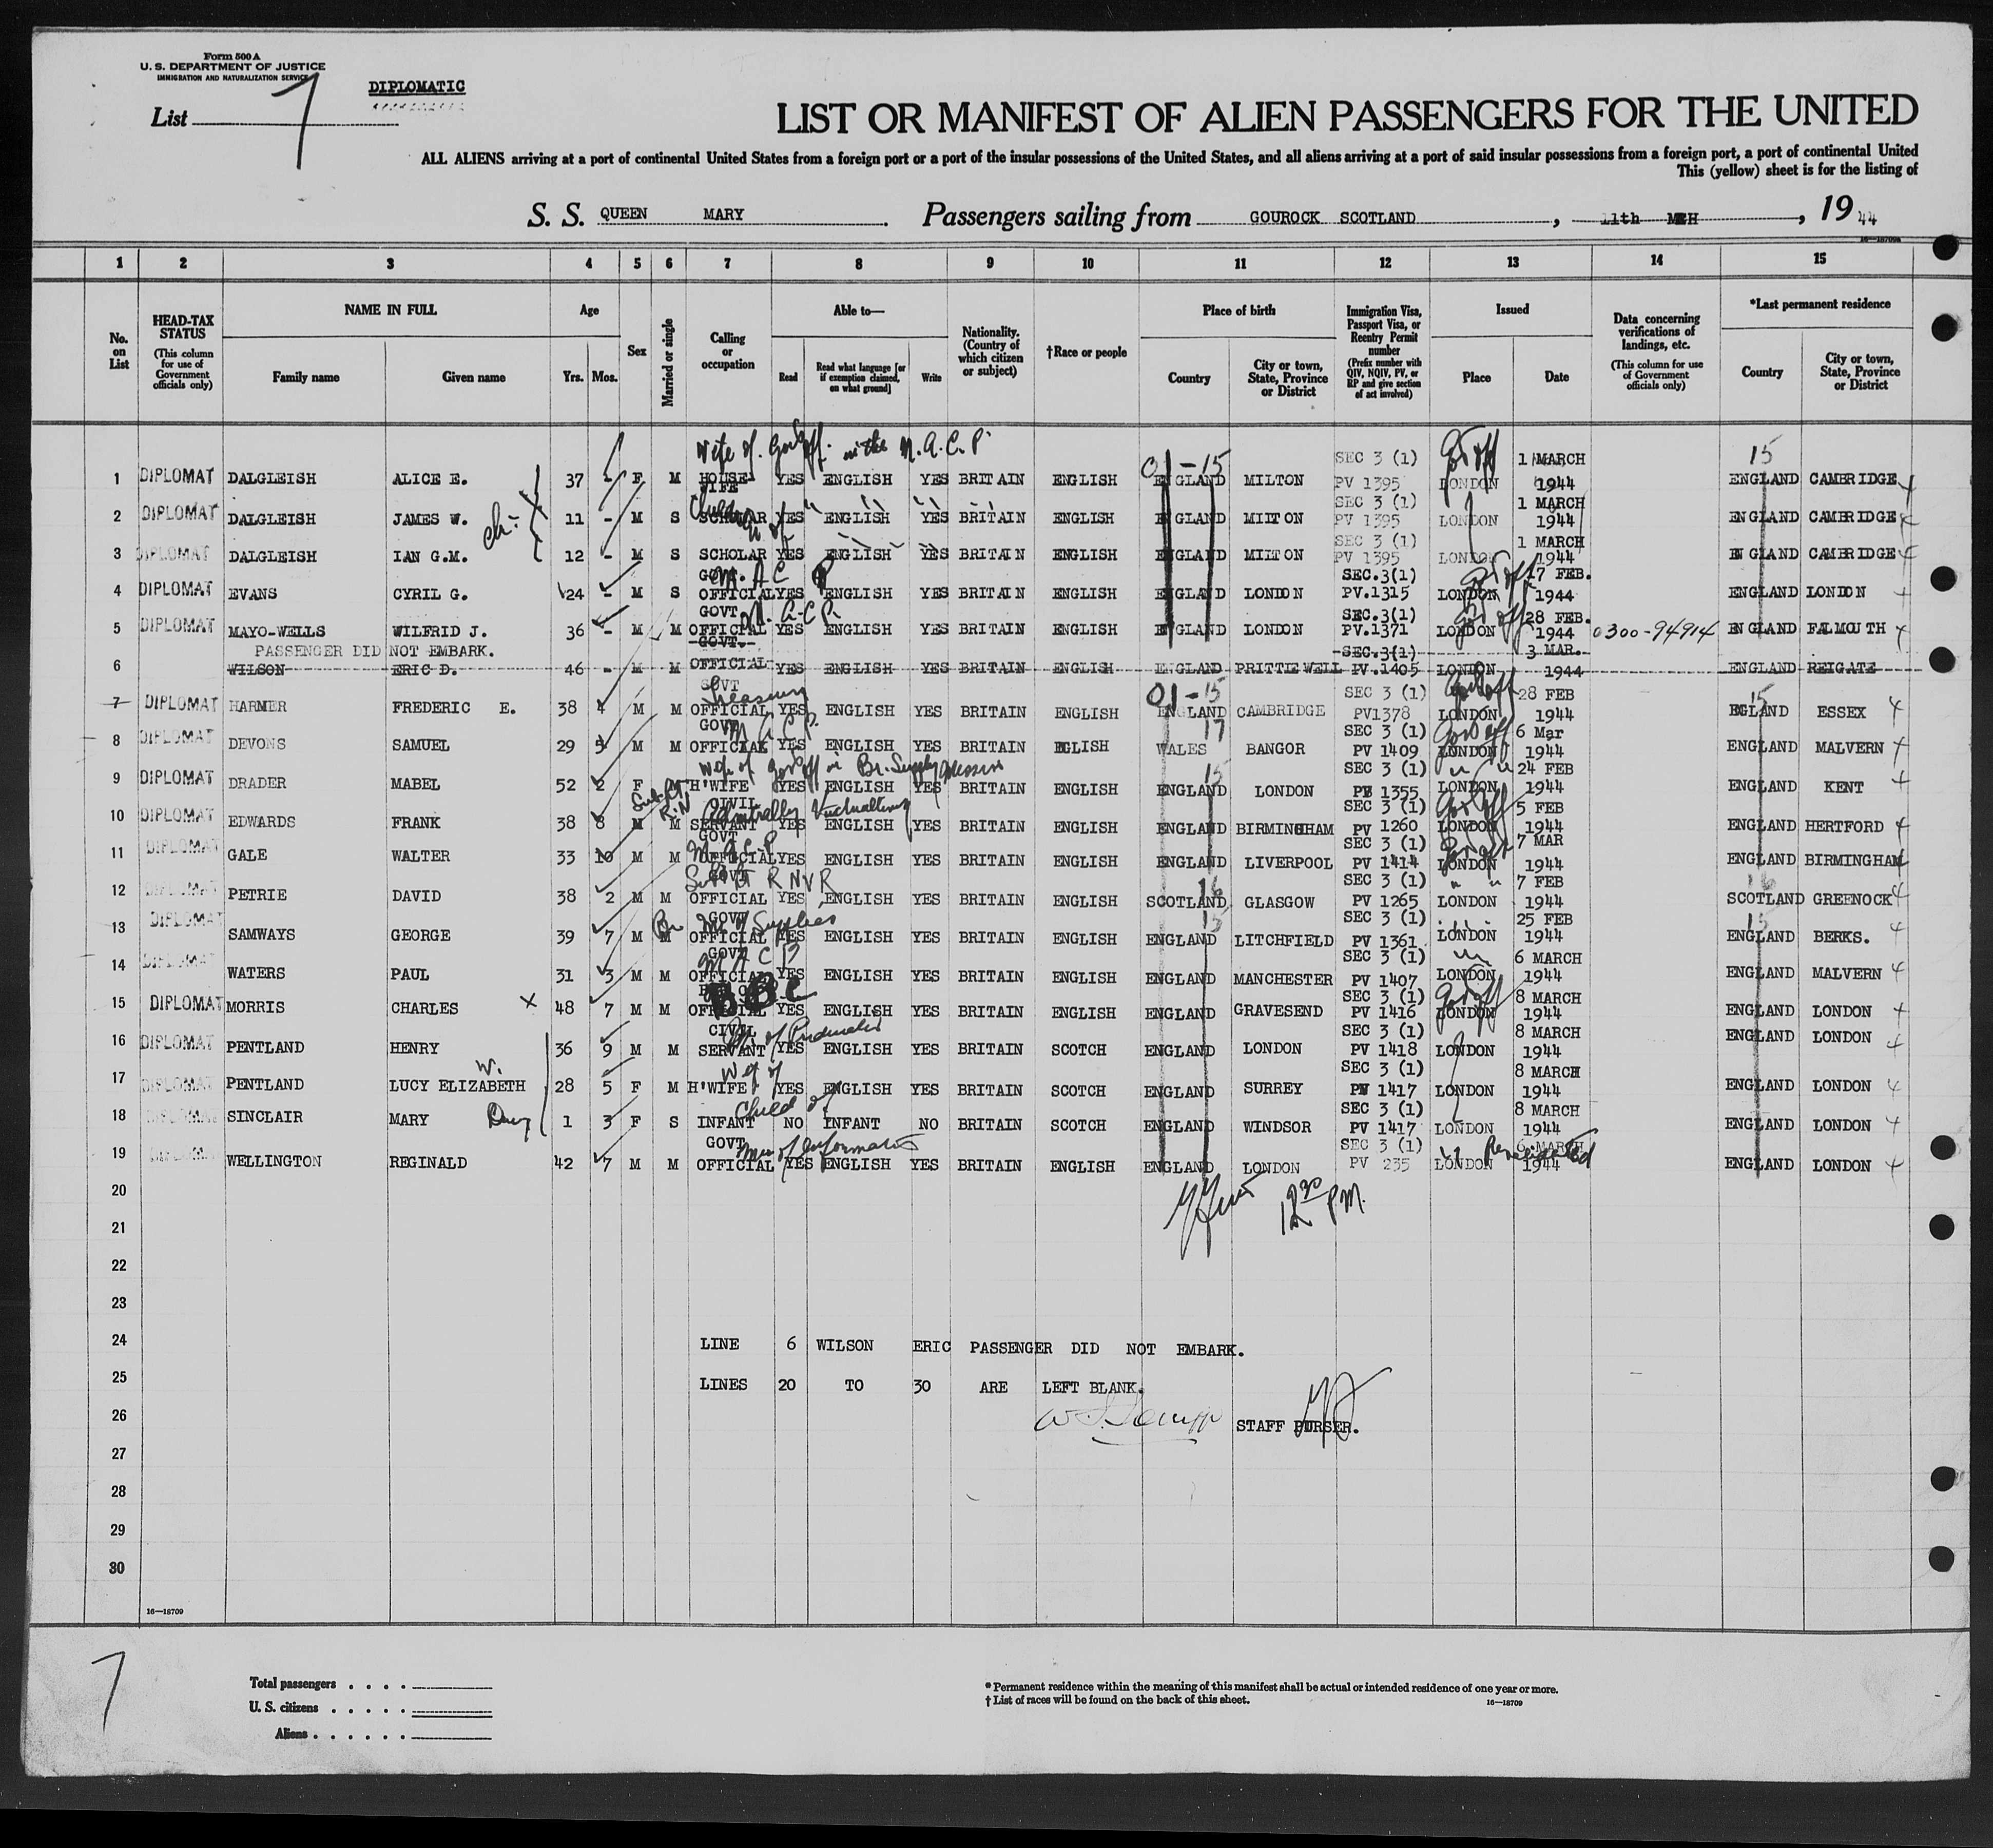 Form 500 A
U. S. DEPARTMENT OF JUSTICE
IMMIGRATION AND NATURALIZATION SERVICE
DIPLOMATIC
List 7
LIST OR MANIFEST OF ALIEN PASSENGERS FOR THE UNITED
ALL ALIENS arriving at a port of continental United States from a foreign port or a port of the insular possessions of the United States, and all aliens arriving at a port of said insular possessions from a foreign port, a port of continental United
This (yellow) sheet is for the listing of
S. S. QUEEN MARY Passengers sailing from GOUROCK SCOTLAND , 11th MCH , 19 44
1 2 3 4 5 6 7 8 9 10 11 12 13 14 15
No. on List
HEAD-TAX STATUS (This column for use of Government officials only)
NAME IN FULL Family name Given name
Age Yrs. Mos.
Sex
Married or single
Calling or occupation
Able to— Read Read what language [or if exemption claimed, on what ground] Write
Nationality. (Country of which citizen or subject)
†Race or people
Place of birth Country City or town, State, Province or District
Immigration Visa, Passport Visa, or Reentry Permit number (Prefix number with QIV, NQIV, PV, or RP and give section of act involved)
Issued Place Date
Data concerning verifications of landings, etc. (This column for use of Government officials only)
*Last permanent residence Country City or town, State, Province or District
Wife of Gov't off. in the M.A.C.P. 01-15 Gov't off 15
1 DIPLOMAT DALGLEISH ALICE E. 37 - F M HOUSE-WIFE YES ENGLISH YES BRITAIN ENGLISH ENGLAND MILTON SEC 3 (1) PV 1395 LONDON 1 MARCH 1944 ENGLAND CAMBRIDGE
2 DIPLOMAT DALGLEISH JAMES W. ch: 11 - M S SCHOLAR YES ENGLISH YES BRITAIN ENGLISH ENGLAND MILTON SEC 3 (1) PV 1395 LONDON 1 MARCH 1944 ENGLAND CAMBRIDGE
3 DIPLOMAT DALGLEISH IAN G.M. 12 - M S SCHOLAR YES ENGLISH YES BRITAIN ENGLISH ENGLAND MILTON SEC 3 (1) PV 1395 LONDON 1 MARCH 1944 ENGLAND CAMBRIDGE
4 DIPLOMAT EVANS CYRIL G. 24 - M S GOVT OFFICIAL M.A.C.P YES ENGLISH YES BRITAIN ENGLISH ENGLAND LONDON SEC.3(1) PV.1315 LONDON Gov't off 17 FEB. 1944 ENGLAND LONDON
5 DIPLOMAT MAYO-WELLS WILFRID J. 36 - M M GOVT OFFICIAL M.A.C.P. YES ENGLISH YES BRITAIN ENGLISH ENGLAND LONDON SEC.3(1) PV.1371 LONDON Gov't off 28 FEB. 1944 0300-94914 ENGLAND FALMOUTH
PASSENGER DID NOT EMBARK.
6 WILSON ERIC D. 46 - M M GOVT. OFFICIAL YES ENGLISH YES BRITAIN ENGLISH ENGLAND PRITTIEWELL SEC.3(1) PV.1405 LONDON 3 MAR. 1944 ENGLAND REIGATE
7 DIPLOMAT HARMER FREDERIC E. 38 4 M M GOVT OFFICIAL Treasury YES ENGLISH YES BRITAIN ENGLISH 01-15 ENGLAND CAMBRIDGE SEC 3 (1) PV1378 LONDON Gov't off 28 FEB 1944 15 ENGLAND ESSEX
8 DIPLOMAT DEVONS SAMUEL 29 5 M M GOVT OFFICIAL M.A.C.P. YES ENGLISH YES BRITAIN ENGLISH 17 WALES BANGOR SEC 3 (1) PV 1409 LONDON Gov't off 6 Mar 1944 ENGLAND MALVERN
9 DIPLOMAT DRADER MABEL 52 2 F M H'WIFE Wife of Gov't off in Br. Supply Mission YES ENGLISH YES BRITAIN ENGLISH 15 ENGLAND LONDON SEC 3 (1) PV 1355 LONDON " " 24 FEB 1944 ENGLAND KENT
10 DIPLOMAT EDWARDS FRANK 38 8 M M Sub-Lt R.N CIVIL SERVANT Admiralty Victualling YES ENGLISH YES BRITAIN ENGLISH ENGLAND BIRMINGHAM SEC 3 (1) PV 1260 LONDON Gov't off 5 FEB 1944 ENGLAND HERTFORD
11 DIPLOMAT GALE WALTER 33 10 M M GOVT OFFICIAL M.A.C.P YES ENGLISH YES BRITAIN ENGLISH ENGLAND LIVERPOOL SEC 3 (1) PV 1414 LONDON Gov't off 7 MAR 1944 ENGLAND BIRMINGHAM
12 DIPLOMAT PETRIE DAVID 38 2 M M GOVT OFFICIAL Sub Lt RNVR YES ENGLISH YES BRITAIN ENGLISH 16 SCOTLAND GLASGOW SEC 3 (1) PV 1265 LONDON " " 7 FEB 1944 16 SCOTLAND GREENOCK
13 DIPLOMAT SAMWAYS GEORGE 39 7 M M GOVT OFFICIAL Br M of Supplies YES ENGLISH YES BRITAIN ENGLISH 15 ENGLAND LITCHFIELD SEC 3 (1) PV 1361 LONDON 25 FEB 1944 15 ENGLAND BERKS.
14 DIPLOMAT WATERS PAUL 31 3 M M GOVT OFFICIAL M A C P YES ENGLISH YES BRITAIN ENGLISH ENGLAND MANCHESTER SEC 3 (1) PV 1407 LONDON 6 MARCH 1944 ENGLAND MALVERN
15 DIPLOMAT MORRIS CHARLES X 48 7 M M OFFICIAL BBC YES ENGLISH YES BRITAIN ENGLISH ENGLAND GRAVESEND SEC 3 (1) PV 1416 LONDON Gov't off 8 MARCH 1944 ENGLAND LONDON
16 DIPLOMAT PENTLAND HENRY 36 9 M M CIVIL SERVANT M. of Production YES ENGLISH YES BRITAIN SCOTCH ENGLAND LONDON SEC 3 (1) PV 1418 LONDON 8 MARCH 1944 ENGLAND LONDON
17 DIPLOMAT PENTLAND LUCY ELIZABETH W. 28 5 F M H'WIFE W of YES ENGLISH YES BRITAIN SCOTCH ENGLAND SURREY SEC 3 (1) PV 1417 LONDON 8 MARCH 1944 ENGLAND LONDON
18 DIPLOMAT SINCLAIR MARY 1 3 F S INFANT Child of NO INFANT NO BRITAIN SCOTCH ENGLAND WINDSOR SEC 3 (1) PV 1417 LONDON 8 MARCH 1944 ENGLAND LONDON
19 DIPLOMAT WELLINGTON REGINALD 42 7 M M GOVT OFFICIAL Min of Information YES ENGLISH YES BRITAIN ENGLISH ENGLAND LONDON SEC 3 (1) PV 235 LONDON 6 MARCH 1944 ENGLAND LONDON
20 12 30 PM.
21
22
23
24 LINE 6 WILSON ERIC PASSENGER DID NOT EMBARK.
25 LINES 20 TO 30 ARE LEFT BLANK.
26 STAFF PURSER.
27
28
29
30
16—18709
7
Total passengers . . . .
U. S. citizens . . . . .
Aliens . . . . . .
* Permanent residence within the meaning of this manifest shall be actual or intended residence of one year or more.
† List of races will be found on the back of this sheet. 16—18709